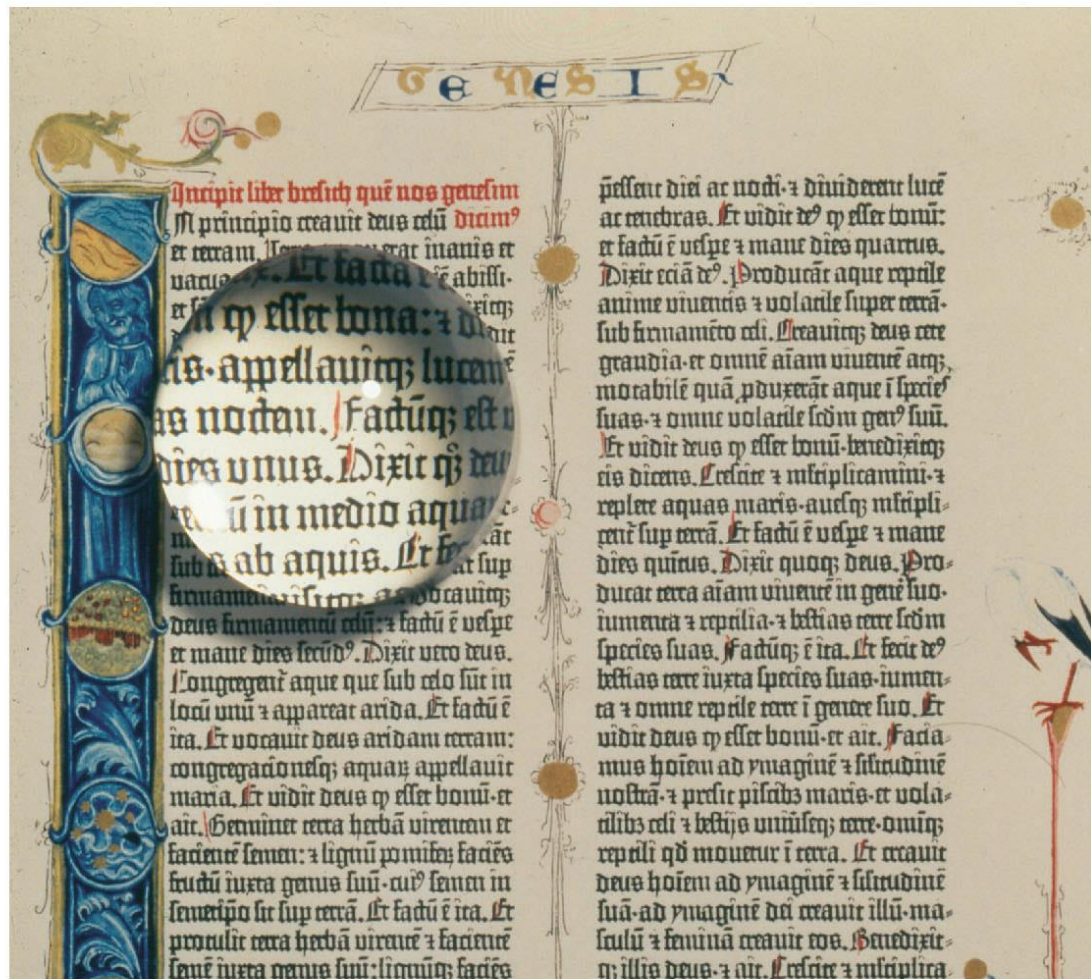 GENESIS
Incipit liber bresich quē nos genesim
N principio creauit deus celū dicimꝰ
et terram. erat inanis et
vacua Et facta ē abissi·
et
n ꝙ esset bona: ⁊
is·appellauitqꝫ lucem
as noctem. Factūqꝫ est
dies vnus. Dixit qꝫ deu
ū in medio aqua
s ab aquis. Et fe
sub sup
firmamen ocauitqꝫ
deus firmamentū celū: ⁊ factū ē vespe
et mane dies secūdꝰ. Dixit vero deus.
Congregent̄ aque que sub celo sūt in
locū vnū ⁊ appareat arida. Et factū ē
ita. Et vocauit deus aridam terram:
congregacionesqꝫ aquaꝝ appellauit
maria. Et vidit deus ꝙ esset bonū·et
ait. Germinet terra herbā virentem et
facientē semen: ⁊ lignū pomiferꝫ faciēs
fructū iuxta genus suū·cuiꝰ semen in
semetip̄o sit sup terrā. Et factū ē ita. Et
protulit terra herbā virentē ⁊ facientē
semē iuxta genus suū: lignūqꝫ faciēs
p̄essent diei ac nocti·⁊ diuiderent lucē
ac tenebras. Et vidit deꝰ ꝙ esset bonū:
et factū ē vespe ⁊ mane dies quartus.
Dixit eciā deꝰ. Producāt aque reptile
anime viuentis ⁊ volatile super terrā·
sub firmamēto celi. Creauitqꝫ deus cete
grandia·et omnē aīam viuentē atqꝫ
motabilē quā ꝓduxerāt aque ī species
suas·⁊ omne volatile sc̄dm genꝰ suū.
Et vidit deus ꝙ esset bonū·benedixitqꝫ
eis dicens. Crescite ⁊ ml̄tiplicamini·⁊
replete aquas maris·auesqꝫ ml̄tipli-
cent̄ sup terrā. Et factū ē vespe ⁊ mane
dies quītus. Dixit quoqꝫ deus. Pro-
ducat terra aīam viuentē in genē suo·
iumenta ⁊ reptilia·⁊ bestias terre sc̄dm
species suas. Factūqꝫ ē ita. Et fecit deꝰ
bestias terre iuxta species suas·iumen-
ta ⁊ omne reptile terre ī genere suo. Et
vidit deus ꝙ esset bonū·et ait. Facia-
mus hoīem ad ymaginē ⁊ sil̄itudinē
nostrā·⁊ presit piscibꝫ maris·et vola-
tilibꝫ celi ⁊ bestijs vniūseqꝫ terre·omīqꝫ
reptili qd̄ mouetur ī terra. Et creauit
deus hoīem ad ymaginē ⁊ sil̄itudinē
suā·ad ymaginē dei creauit illū·ma-
sculū ⁊ feminā creauit eos. Benedixit-
qꝫ illis deus·⁊ ait. Crescite ⁊ ml̄tiplica